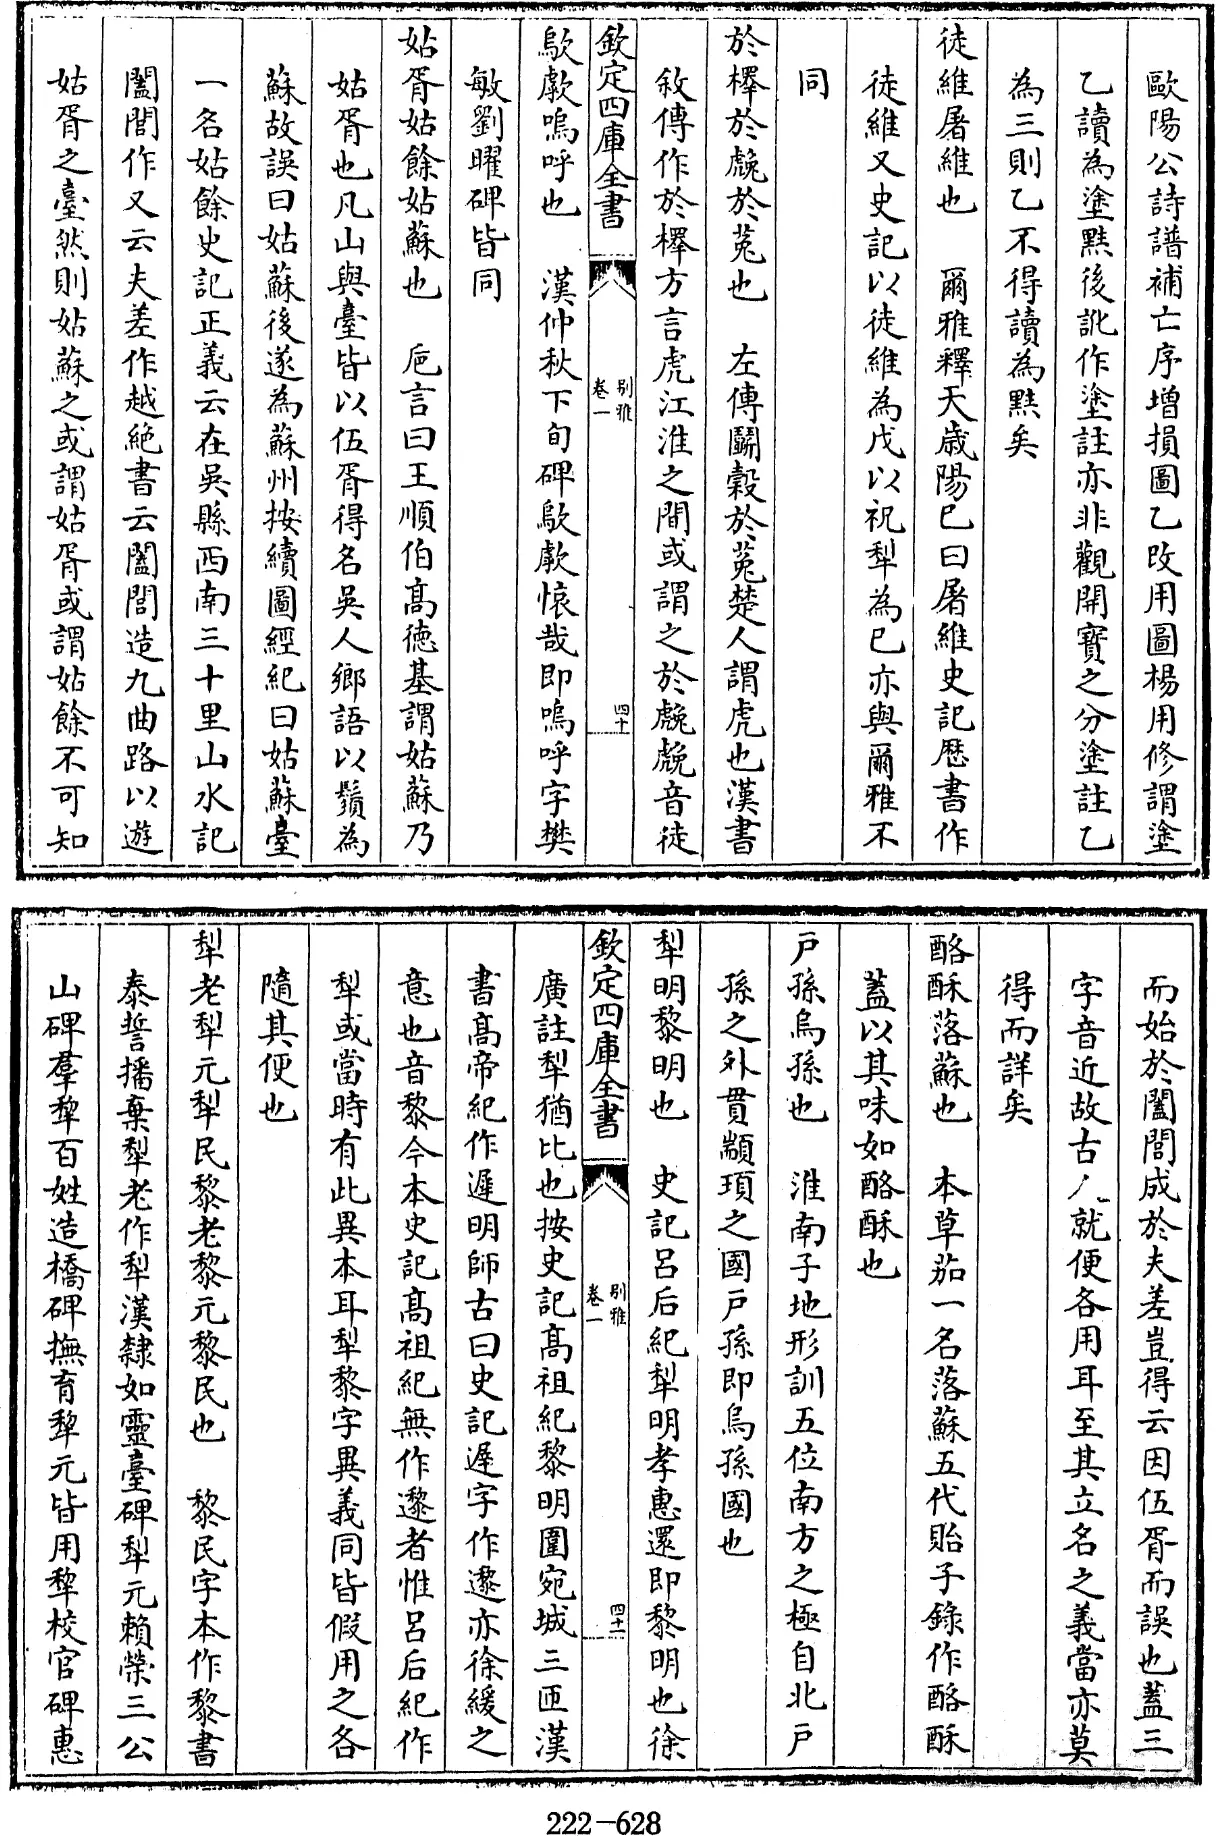 歐陽公詩譜補亡序增損圖乙改用圖楊用修謂塗
乙讀為塗㸃後訛作塗註亦非觀開寶之分塗註乙
為三則乙不得讀為㸃矣
徒維屠維也　爾雅釋天歲陽巳曰屠維史記歷書作
徒維又史記以徒維為戊以祝犁為巳亦與爾雅不
同
於檡於䖘於菟也　左傳鬭穀於菟楚人謂虎也漢書
敘傳作於檡方言虎江淮之間或謂之於䖘䖘音徒
欽定四庫全書
別雅
卷一
四十
歍歑嗚呼也　漢仲秋下旬碑歍歑懷哉即嗚呼字樊
敏劉曜碑皆同
姑胥姑餘姑蘇也　巵言曰王順伯髙徳基謂姑蘇乃
姑胥也凡山與臺皆以伍胥得名吳人鄉語以鬚為
蘇故誤曰姑蘇後遂為蘇州按續圖經紀曰姑蘇臺
一名姑餘史記正義云在吳縣西南三十里山水記
闔閭作又云夫差作越絶書云闔閭造九曲路以遊
姑胥之臺然則姑蘇之或謂姑胥或謂姑餘不可知
而始於闔閭成於夫差豈得云因伍胥而誤也葢三
字音近故古人就便各用耳至其立名之義當亦莫
得而詳矣
酪酥落蘇也　本草茄一名落蘇五代貽子錄作酪酥
葢以其味如酪酥也
戸孫烏孫也　淮南子地形訓五位南方之極自北戸
孫之外貫顓頊之國戸孫即烏孫國也
犁明黎明也　史記呂后紀犁明孝惠還即黎明也徐
欽定四庫全書
別雅
卷一
四十一
廣註犁猶比也按史記髙祖紀黎明圍宛城三匝漢
書髙帝紀作遲明師古曰史記遲字作邌亦徐緩之
意也音黎今本史記髙祖紀無作邌者惟呂后紀作
犁或當時有此異本耳犁黎字異義同皆假用之各
隨其便也
犁老犁元犁民黎老黎元黎民也　黎民字本作黎書
泰誓播棄犁老作犁漢隸如靈臺碑犁元賴榮三公
山碑羣犂百姓造橋碑撫育犂元皆用犂校官碑惠
222-628